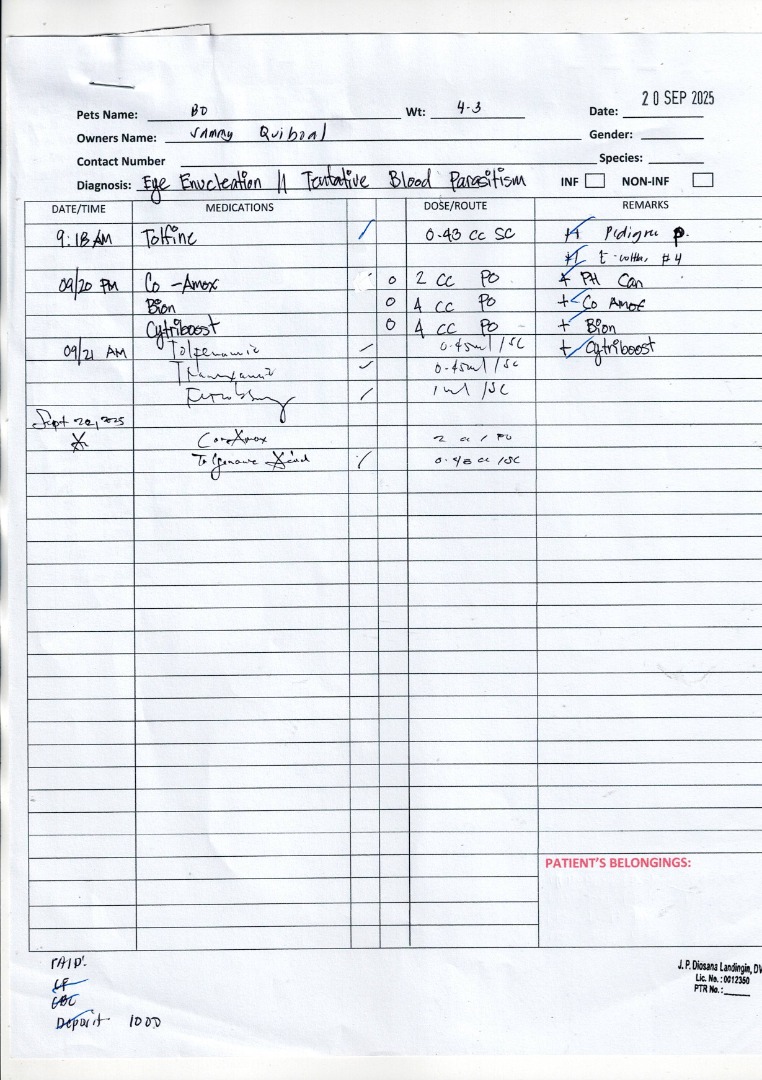 20 SEP 2025
Pets Name: BO Wt: 4.3 Date:
Owners Name: Jammy Gender:
Contact Number Species:
Diagnosis: Eye Enucleation // Tentative Blood Parasitism INF NON-INF
DATE/TIME MEDICATIONS DOSE/ROUTE REMARKS
9:18 AM Tolfine / 0.43 cc SC #1 Pedigree p.
#1 E-collar #4
09/20 PM Co-Amox 0 2 cc PO + PH Can
Bion 0 4 cc PO + Co Amox
Cytriboost 0 4 cc PO + Bion
09/21 AM Tolfenamic 0.45ml /SC + Cytriboost
0.45ml /SC
1ml /SC
Sept 20, 2025
2 cc / PO
0.43 cc /SC
PATIENT'S BELONGINGS:
PAID:
CBC
Deposit 1000
J. P. Diosana Landingin, DV
Lic. No.: 0012350
PTR No.: